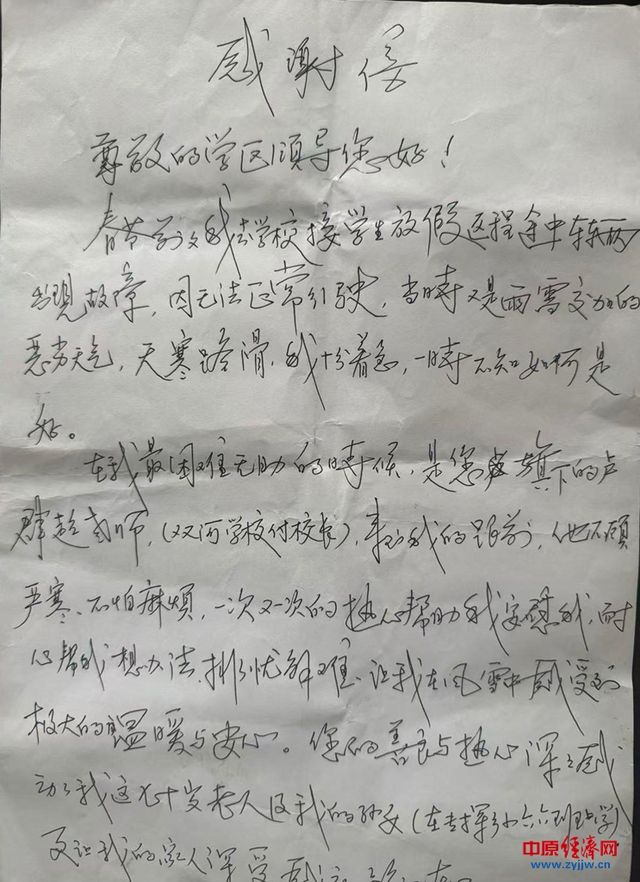 感谢信
尊敬的学区领导您好!
春节前夕我去学校接学生放假返程途中车辆
出现故障,因无法正常引驶,当时又是雨雪交加的
恶劣天气,天寒路滑,我十分着急,一时不知如何是
好。
在我最困难无助的时候,是您旗下的卢
群超老师,(双河学校付校长),来到我的跟前,他不顾
严寒、不怕麻烦,一次又一次的热心帮助我安慰我,耐
心帮我想办法,排忧解难,让我在风雪中感受到
极大的温暖与安心。您的善良与热心深深感
动了我这七十岁老人及我的孙女(在
更让我的家人深受感
中原经济网
www.zyjjw.cn